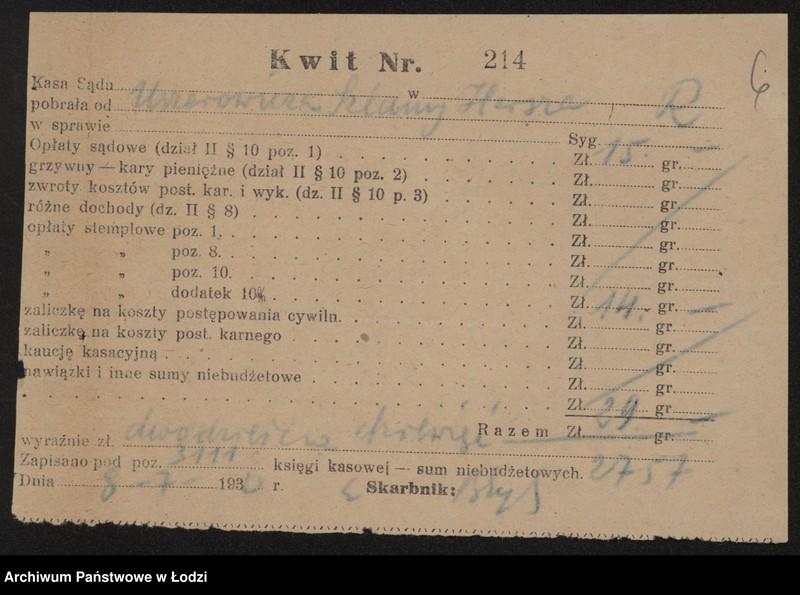 Kwit Nr. 214
6
Kasa Sądu w
pobrała od Hersza R
w sprawie Syg.
Opłaty sądowe (dział II § 10 poz. 1) Zł. 15. gr. —
grzywny — kary pieniężne (dział II § 10 poz. 2) Zł. gr.
zwroty kosztów post. kar. i wyk. (dz. II § 10 p. 3) Zł. gr.
różne dochody (dz. II § 8) Zł. gr.
opłaty stemplowe poz. 1. Zł. gr.
„ „ poz. 8. Zł. gr.
„ „ poz. 10. Zł. gr.
„ „ dodatek 10% Zł. 14. gr. —
zaliczkę na koszty postępowania cywiln. Zł. gr.
zaliczkę na koszty post. karnego Zł. gr.
kaucję kasacyjną Zł. gr.
nawiązki i inne sumy niebudżetowe Zł. gr.
Zł. 29. gr. —
Razem Zł. gr.
wyraźnie zł. dwadzieścia dziewięć
Zapisano pod poz. 3111 księgi kasowej — sum niebudżetowych. 2757
Dnia 8 - 7 - 193 r. Skarbnik:
Archiwum Państwowe w Łodzi